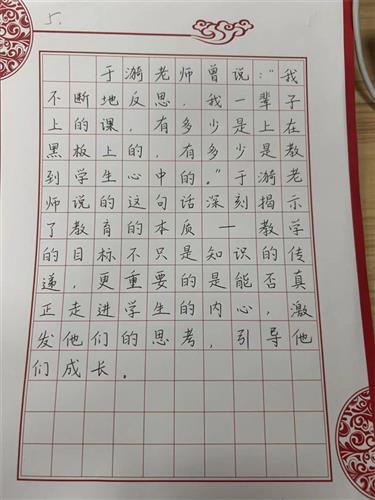 5.
于漪老师曾说:“我
不断地反思,我一辈子
上的课,有多少是上在
黑板上的,有多少是教
到学生心中的。”于漪老
师说的这句话深刻揭示
了教育的本质—教学
的目标不只是知识的传
递,更重要的是能否真
正走进学生的内心,激
发他们的思考,引导他
们成长.